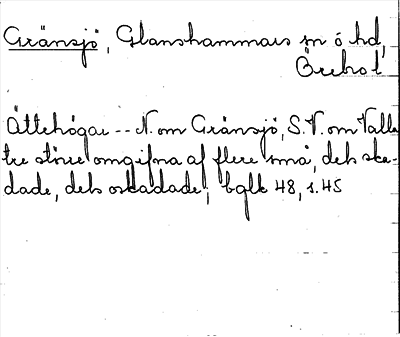 Gränsjö, Glanshammars sn ö hd,
Örebro l
Ättehögar -- N. om Gränsjö, S.V. om Valla
tre större omgifna af flere små, dels ska-
dade, dels oskadade; bglk 48, s. 45